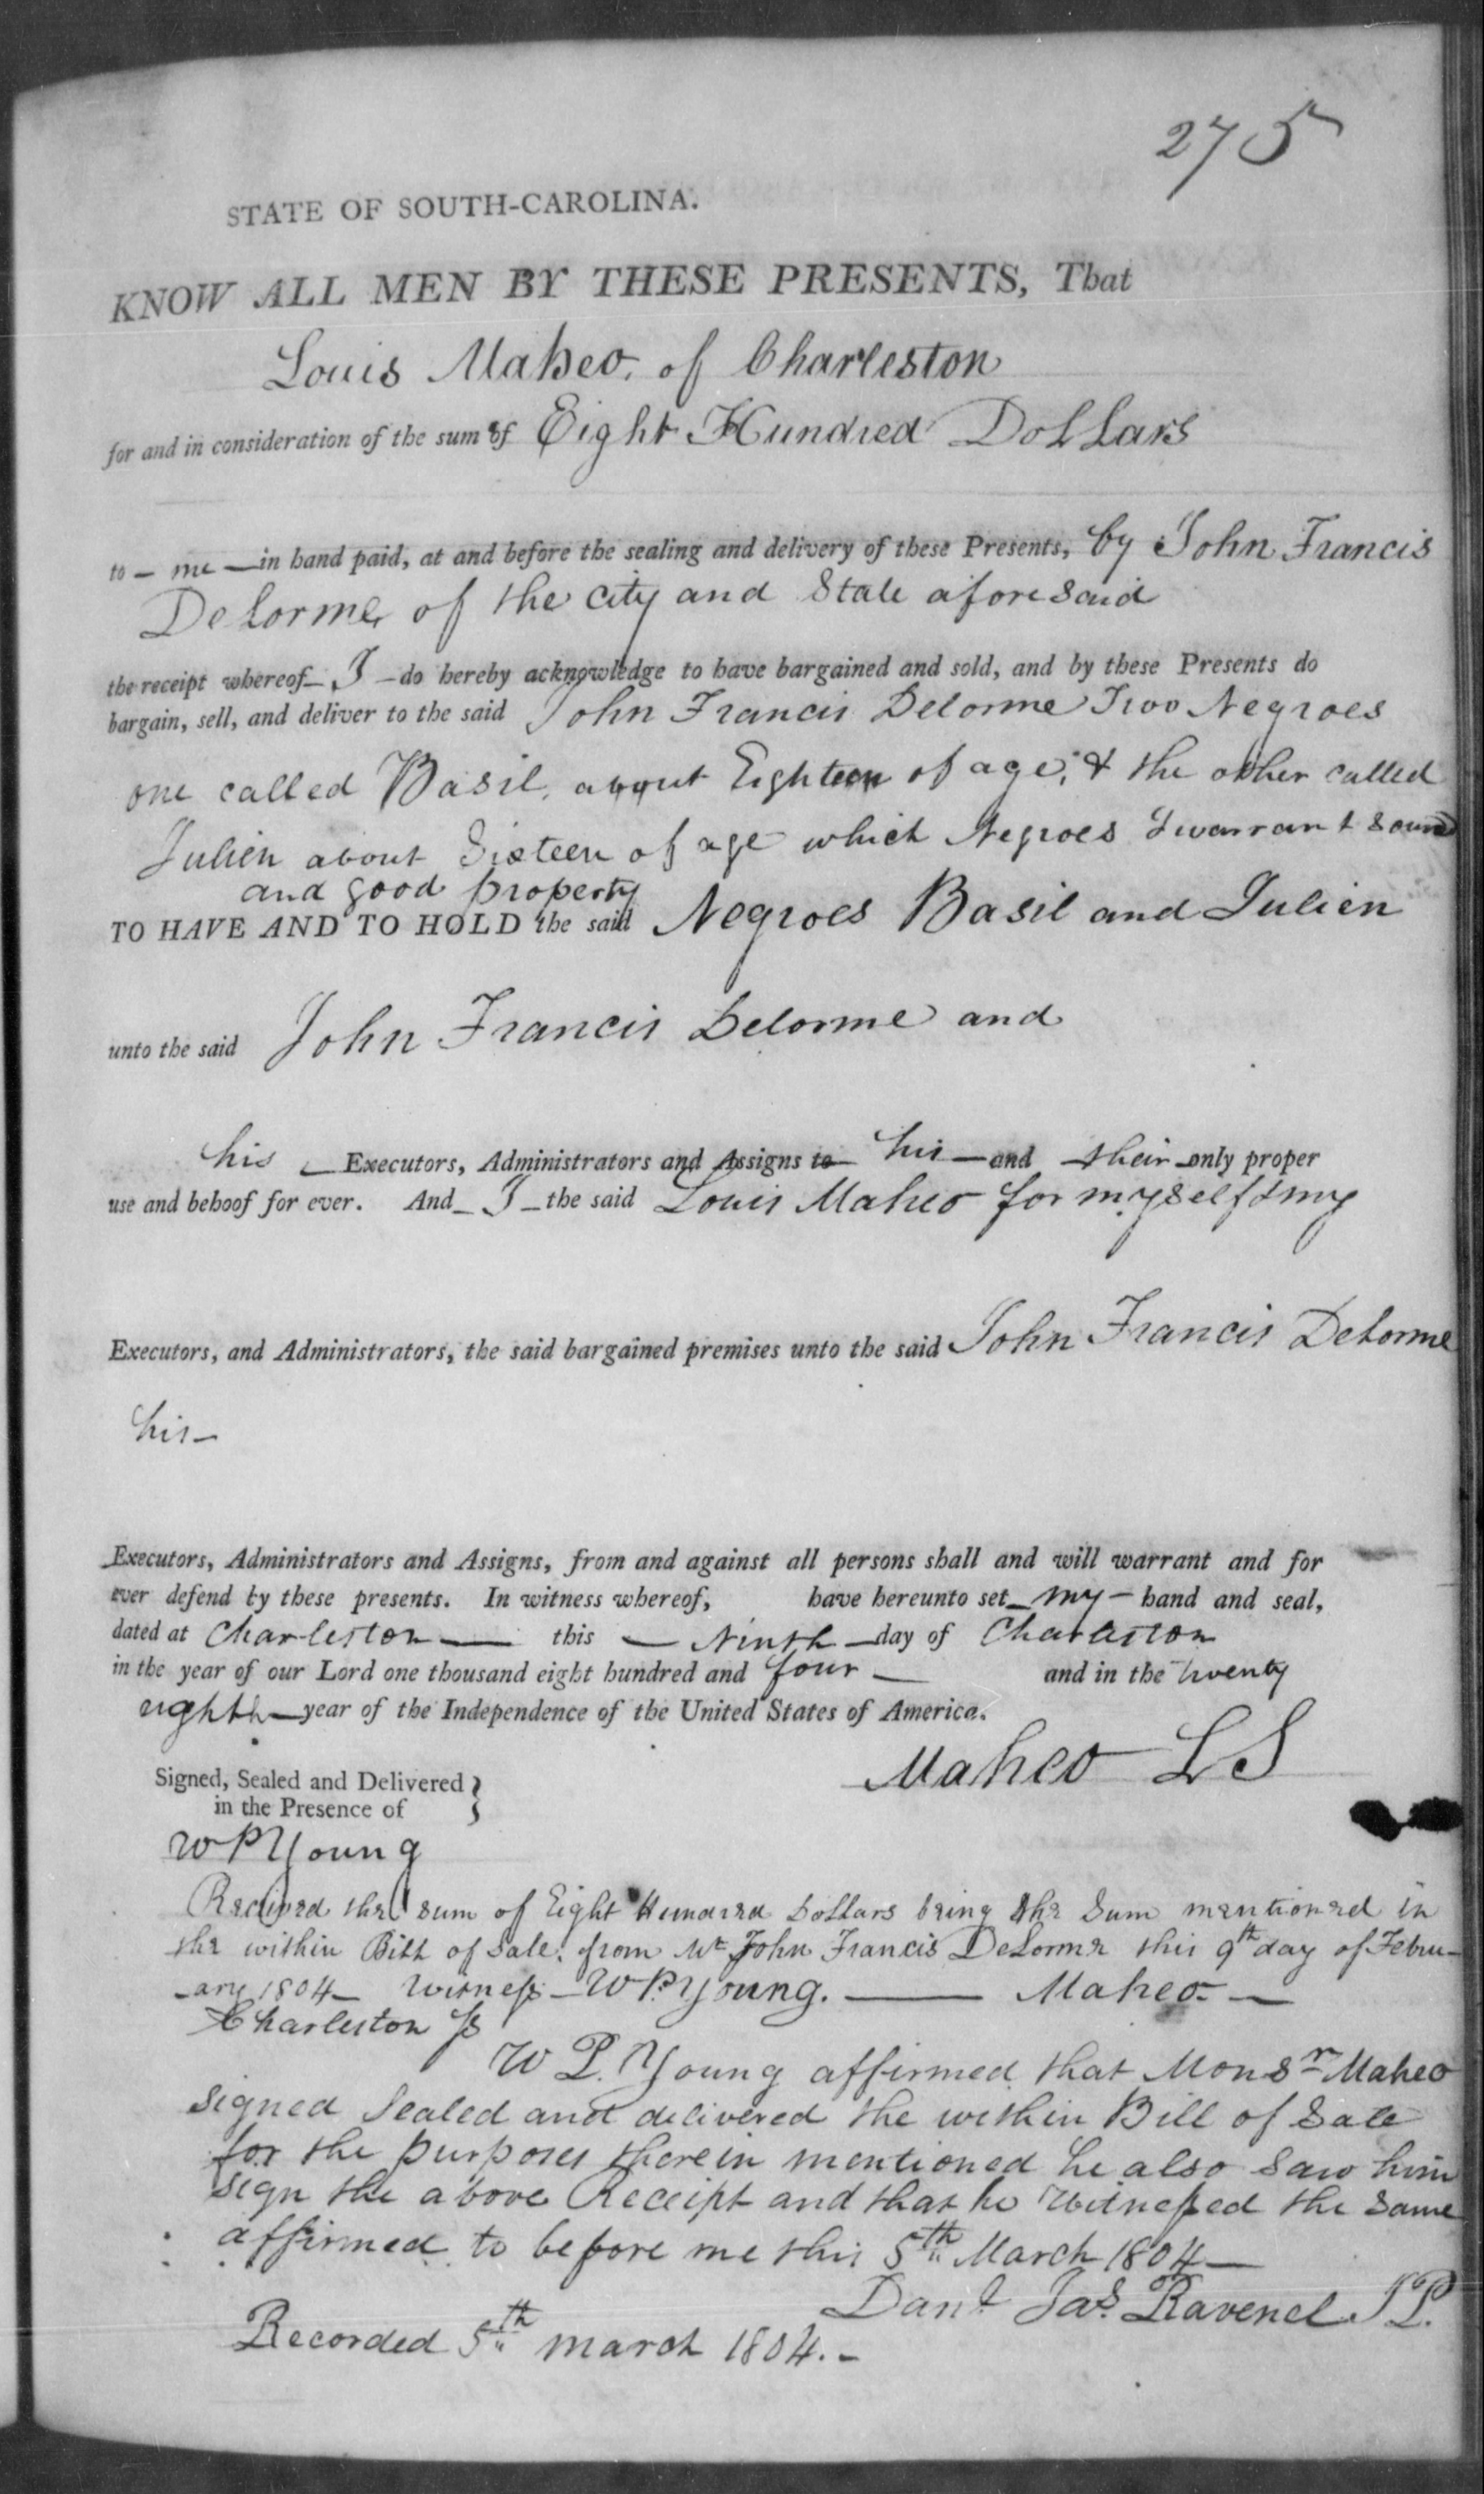 275
STATE OF SOUTH-CAROLINA.
KNOW ALL MEN BY THESE PRESENTS, That
Louis Maheo, of Charleston
for and in consideration of the sum of Eight Hundred Dollars
to - me - in hand paid, at and before the sealing and delivery of these Presents, by John Francis
Delorme, of the City and State aforesaid
the receipt whereof - I - do hereby acknowledge to have bargained and sold, and by these Presents do
bargain, sell, and deliver to the said John Francis Delorme Two Negroes
one called Basil, about Eighteen of age, & the other called
Julien about Sixteen of age which Negroes I warrant sound
and good property
TO HAVE AND TO HOLD the said Negroes Basil and Julien
unto the said John Francis Delorme and
his - Executors, Administrators and Assigns to his - and - their only proper
use and behoof for ever. And - I - the said Louis Maheo for myself & my
Executors, and Administrators, the said bargained premises unto the said John Francis Delorme
his -
Executors, Administrators and Assigns, from and against all persons shall and will warrant and for
ever defend by these presents. In witness whereof, have hereunto set - my - hand and seal,
dated at Charleston - this - Ninth - day of Charleston
in the year of our Lord one thousand eight hundred and four - and in the twenty
eighth - year of the Independence of the United States of America.
Maheo LS
Signed, Sealed and Delivered }
in the Presence of
W P Young
Received the sum of Eight Hundred Dollars being the Sum mentioned in
the within Bill of Sale, from Mr John Francis DeLorme this 9th day of Febru-
-ary 1804 - Witness - W P. Young. - Maheo -
Charleston Ss
W P. Young affirmed that Monsr Maheo
signed Sealed and delivered the within Bill of Sale
for the purposes therein mentioned he also saw him
sign the above Receipt and that he Witnessed the same
affirmed to before me this 5th March 1804 -
Danl Jas Ravenel J P.
Recorded 5th march 1804. -